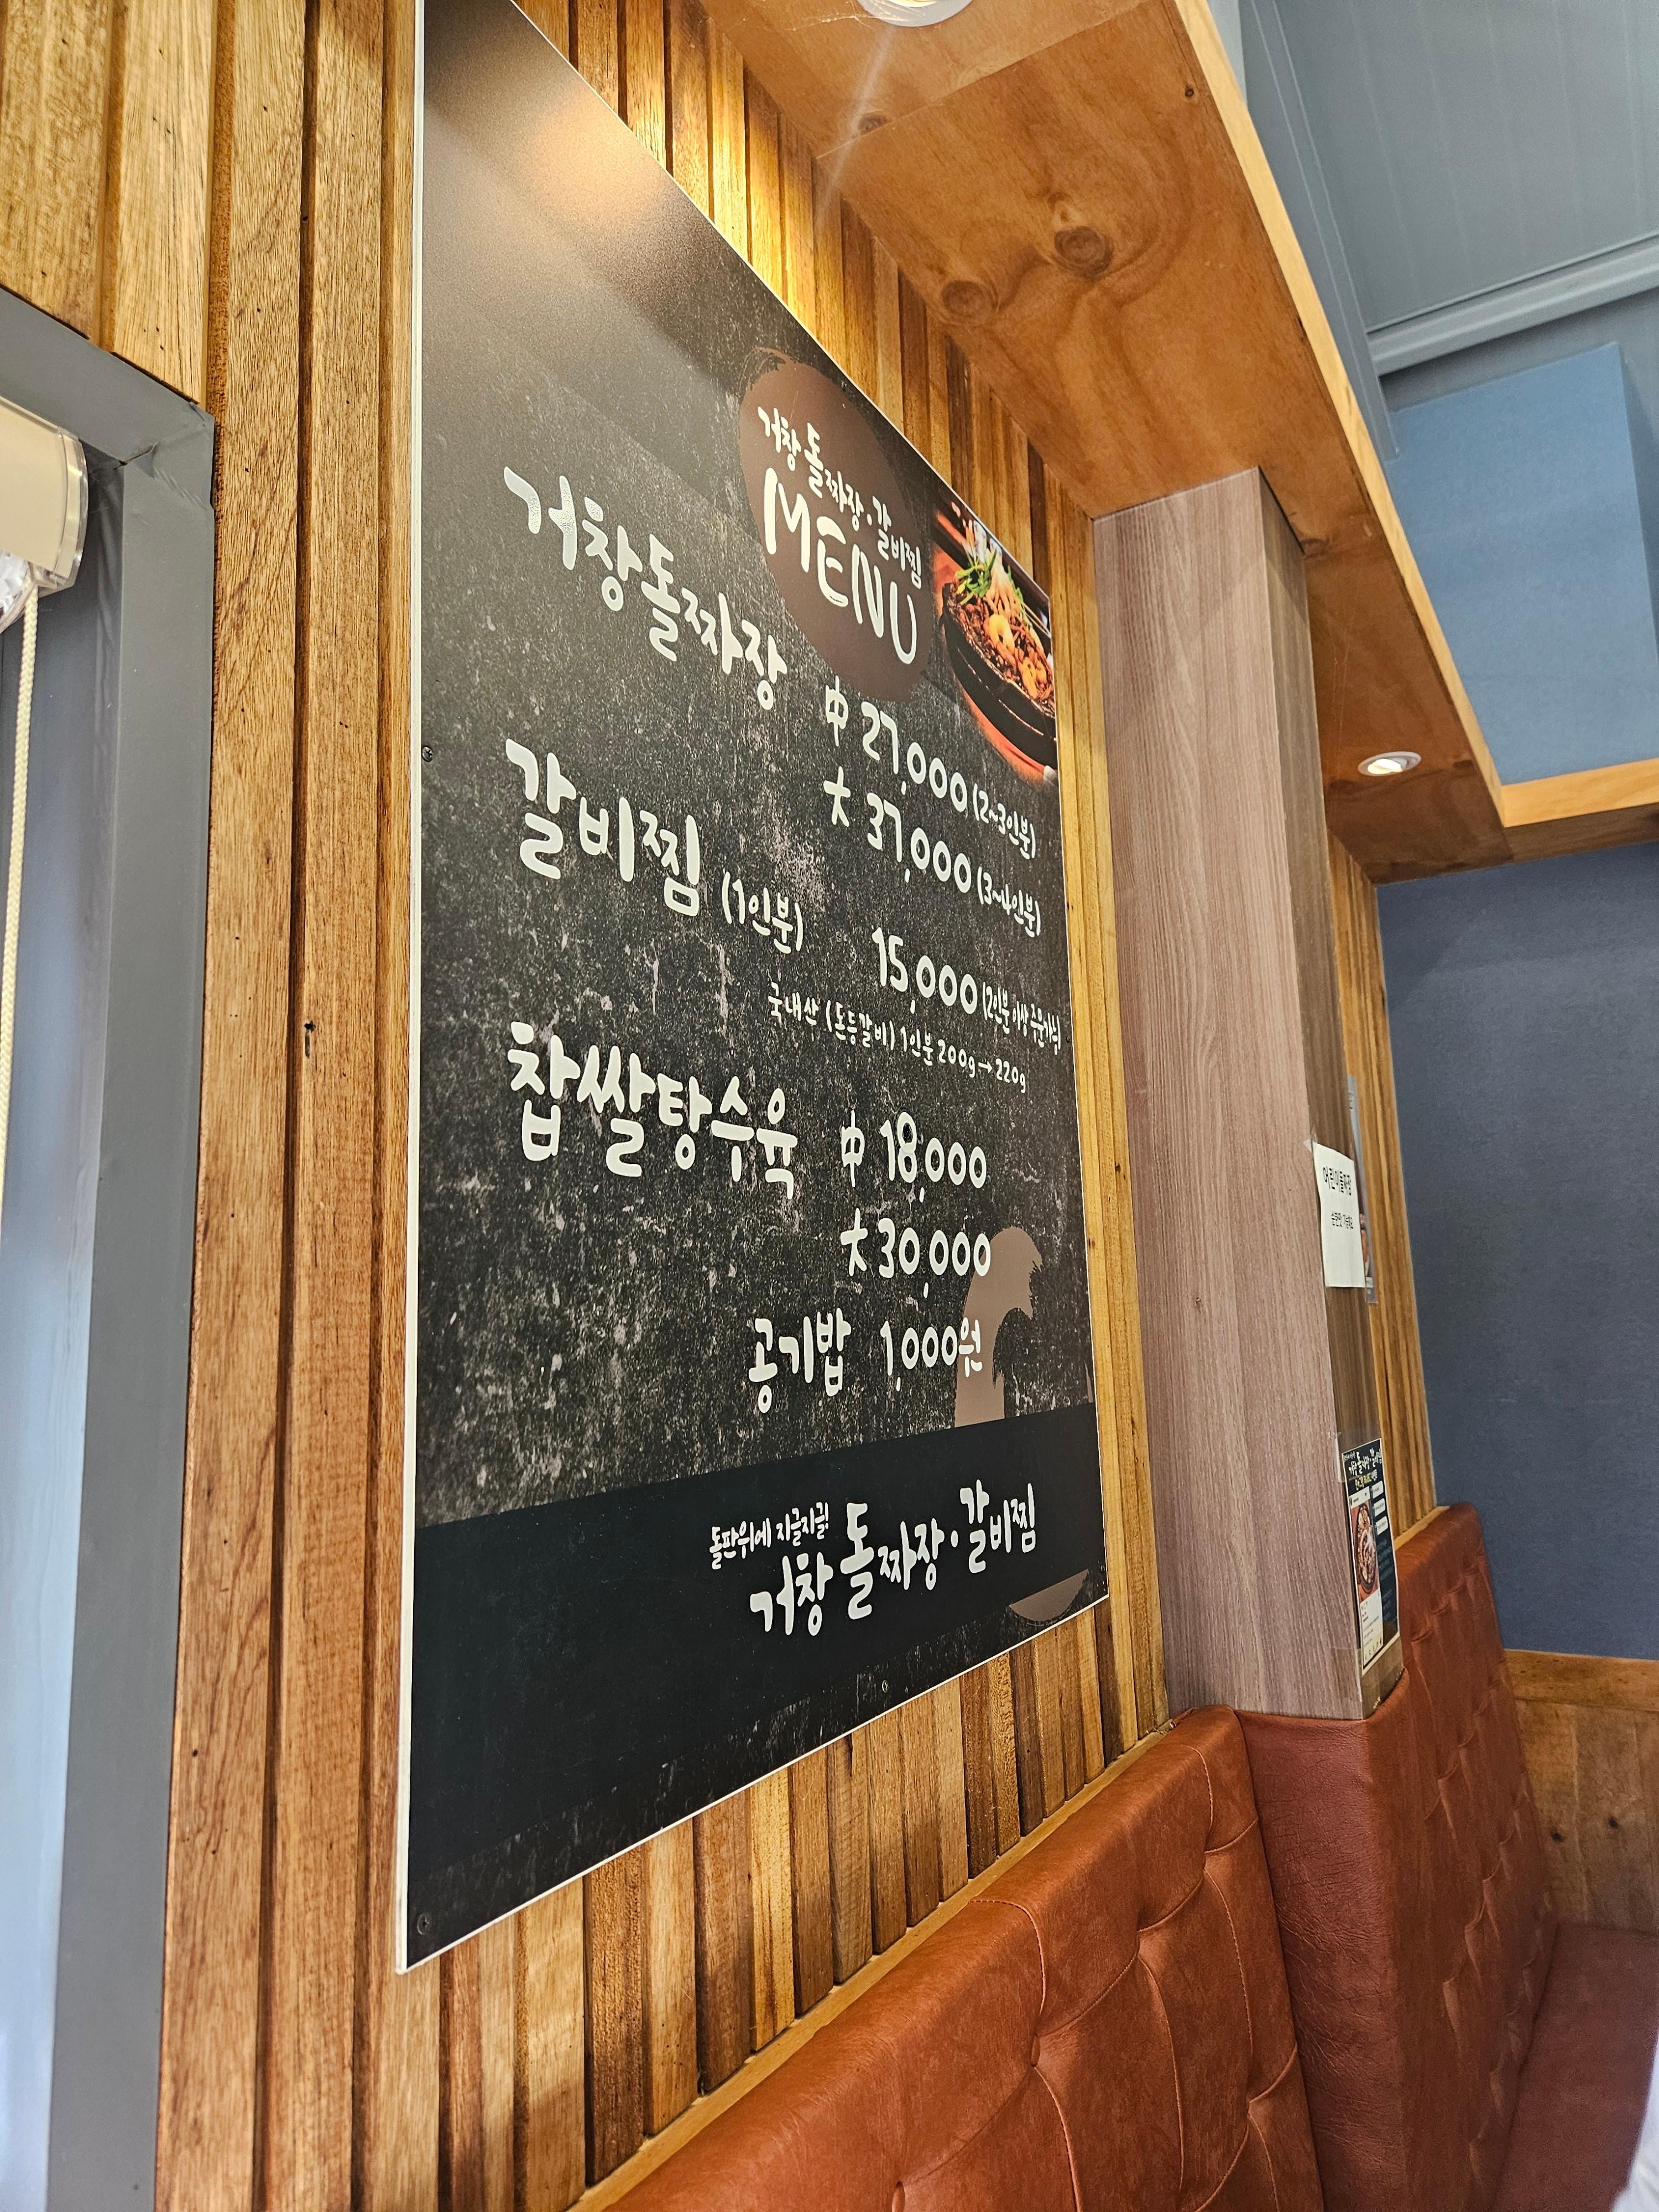 거창돌짜장·갈비찜
MENU
거창돌짜장
中 27,000 (2~3인분)
大 37,000 (3~4인분)
갈비찜 (1인분) 15,000 (2인분 이상 주문가능)
국내산 (돈등갈비) 1인분 200g→220g
찹쌀탕수육 中 18,000
大 30,000
공기밥 1,000원
돌판위에 지글지글!
거창돌짜장·갈비찜
어린이돌짜장